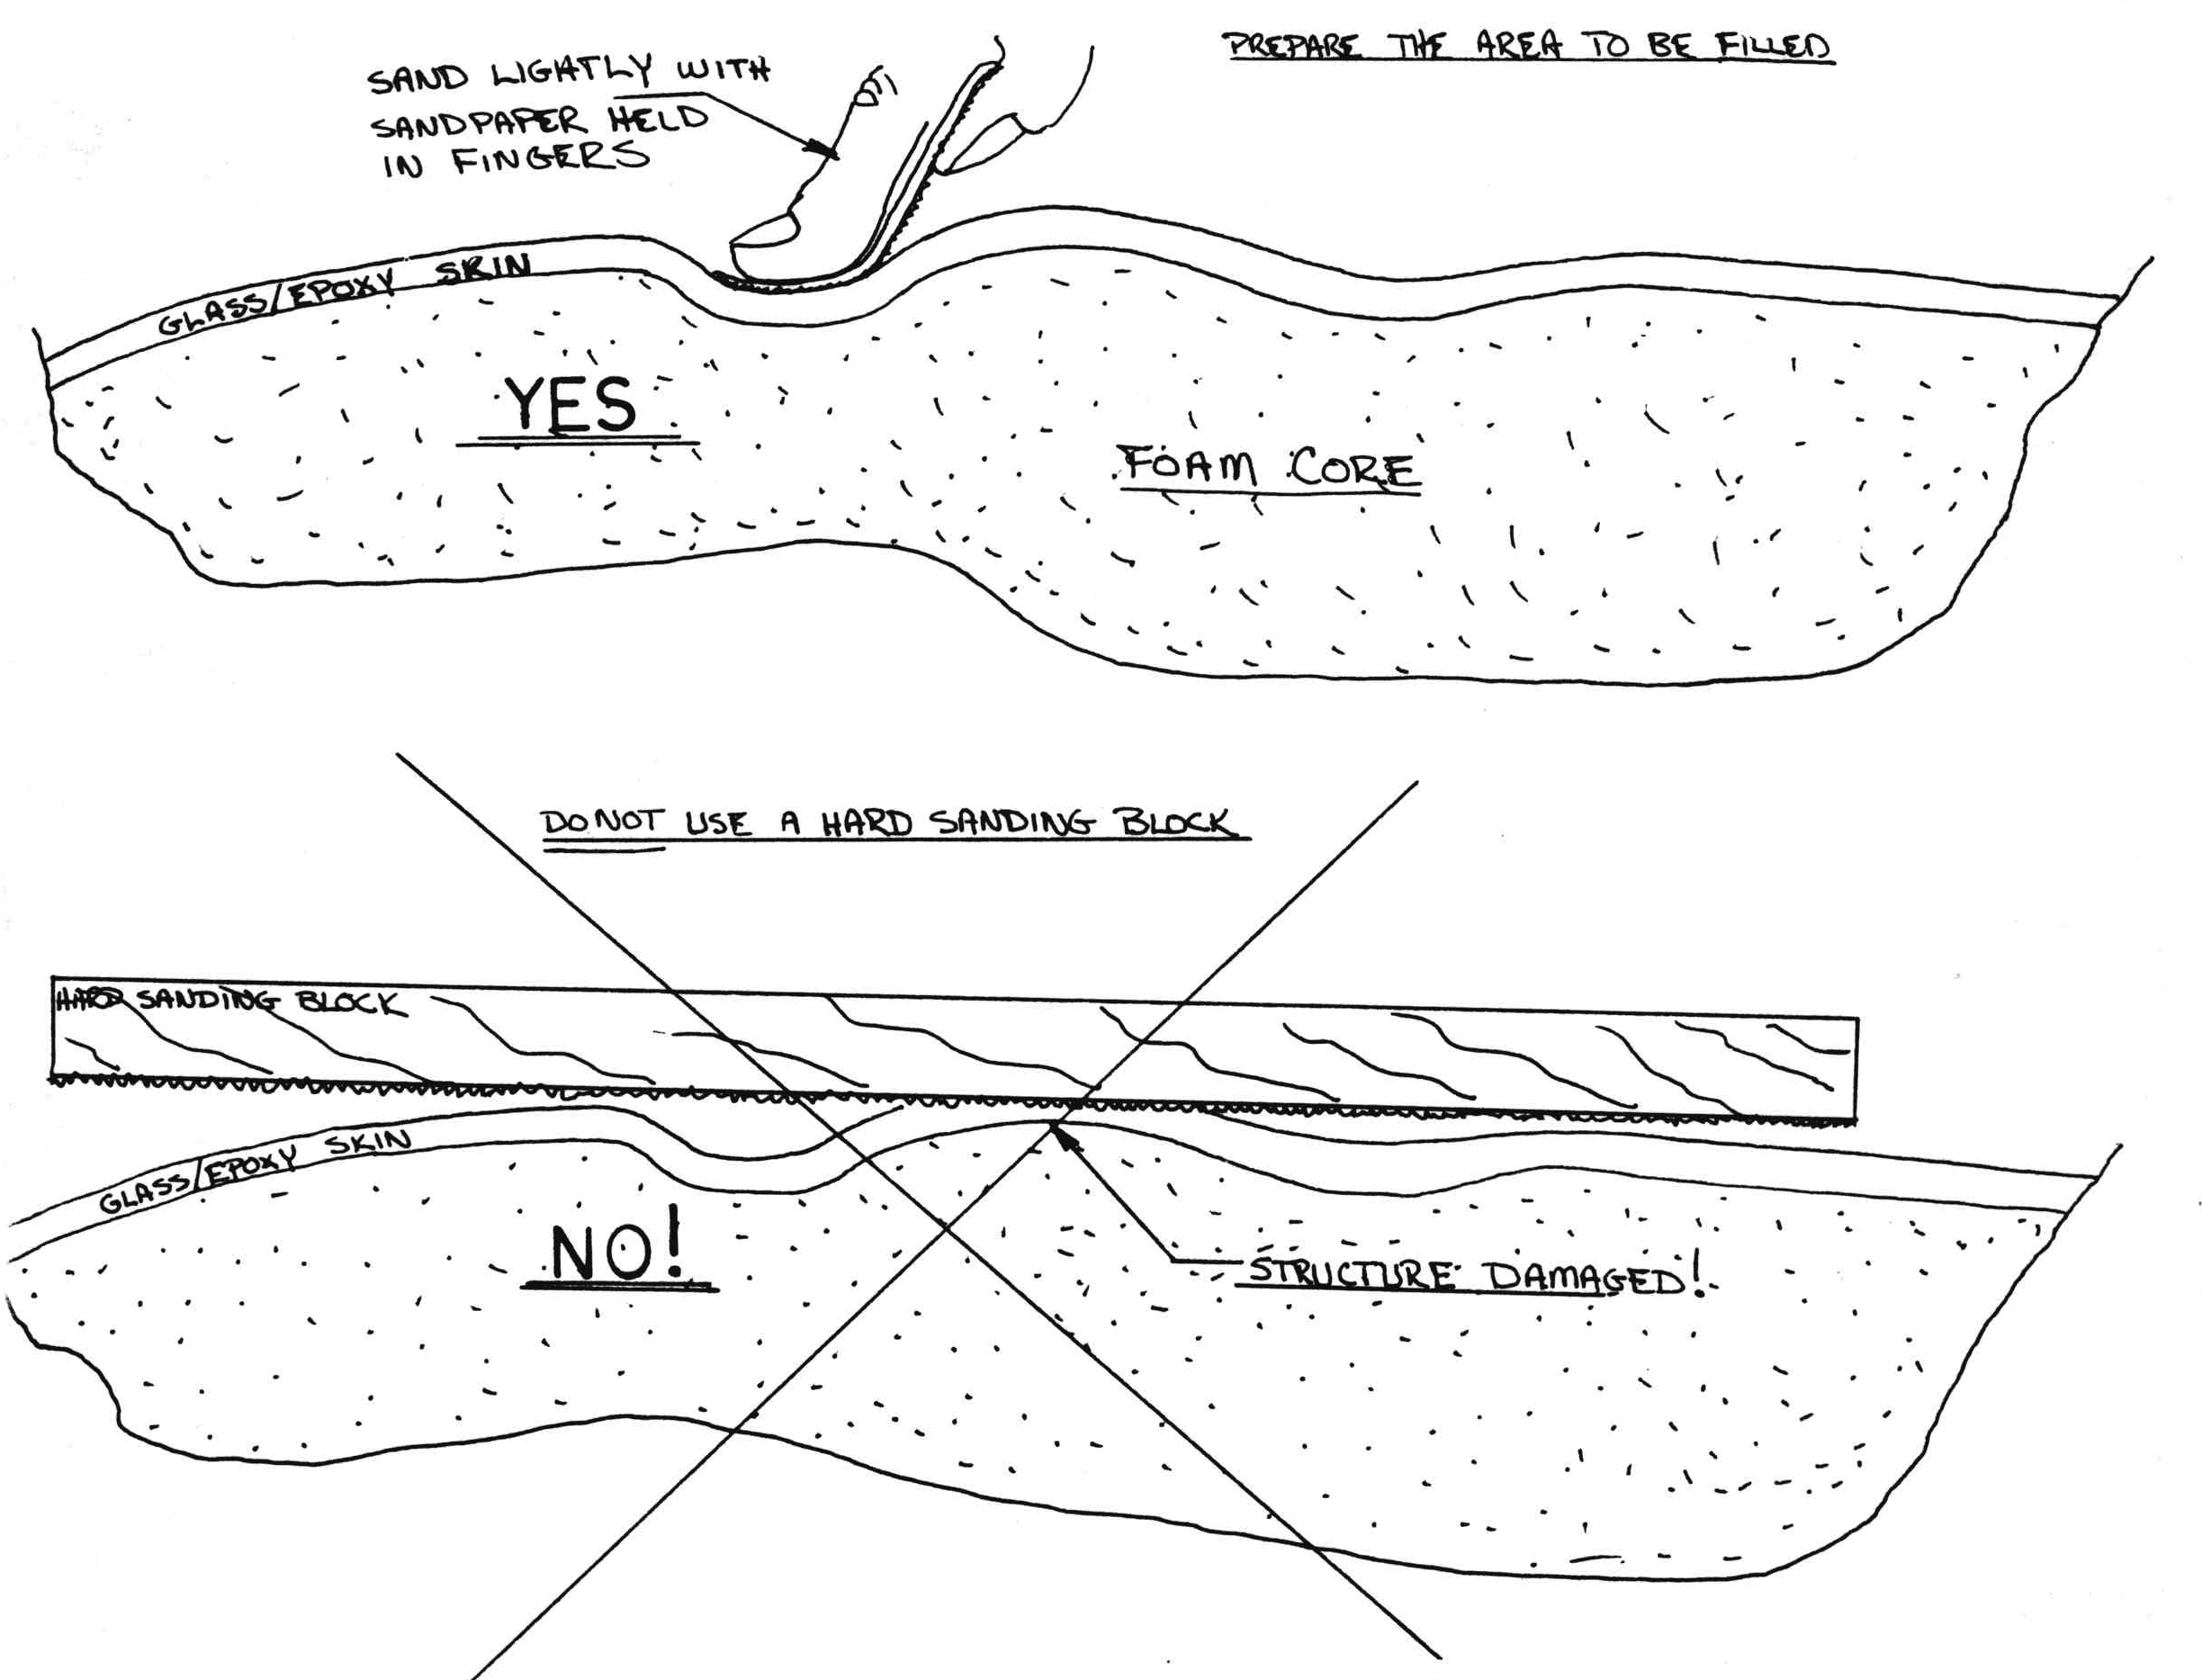 PREPARE THE AREA TO BE FILLED
SAND LIGHTLY WITH
SANDPAPER HELD
IN FINGERS
GLASS/EPOXY SKIN
YES
FOAM CORE
DO NOT USE A HARD SANDING BLOCK
HARD SANDING BLOCK
GLASS/EPOXY SKIN
NO!
STRUCTURE DAMAGED!